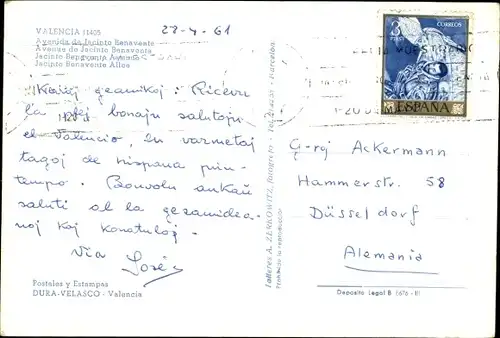 VALENCIA 11405
28-4-61
Avenida de Jacinto Benavente
Avenue de Jacinto Benavente
Jacinto Benavente Avenue
Jacinto Benavente Allee
Karaj geamikoj: Ricevu
l'a plej bonajn salutojn
el Valencio, en varmetaj
tagoj de hispana prin-
tempo. Bonvolu ankaŭ
saluti al la gesamidea-
noj kaj konatuloj.
Via
José
Postales y Estampas
DURA-VELASCO - Valencia
Talleres A. ZERKOWITZ, Barcelona
Prohibida la reproducción
3
CORREOS
ESPAÑA
G-roj Ackermann
Hammerstr. 58
Düsseldorf
Alemania
Deposito Legal B